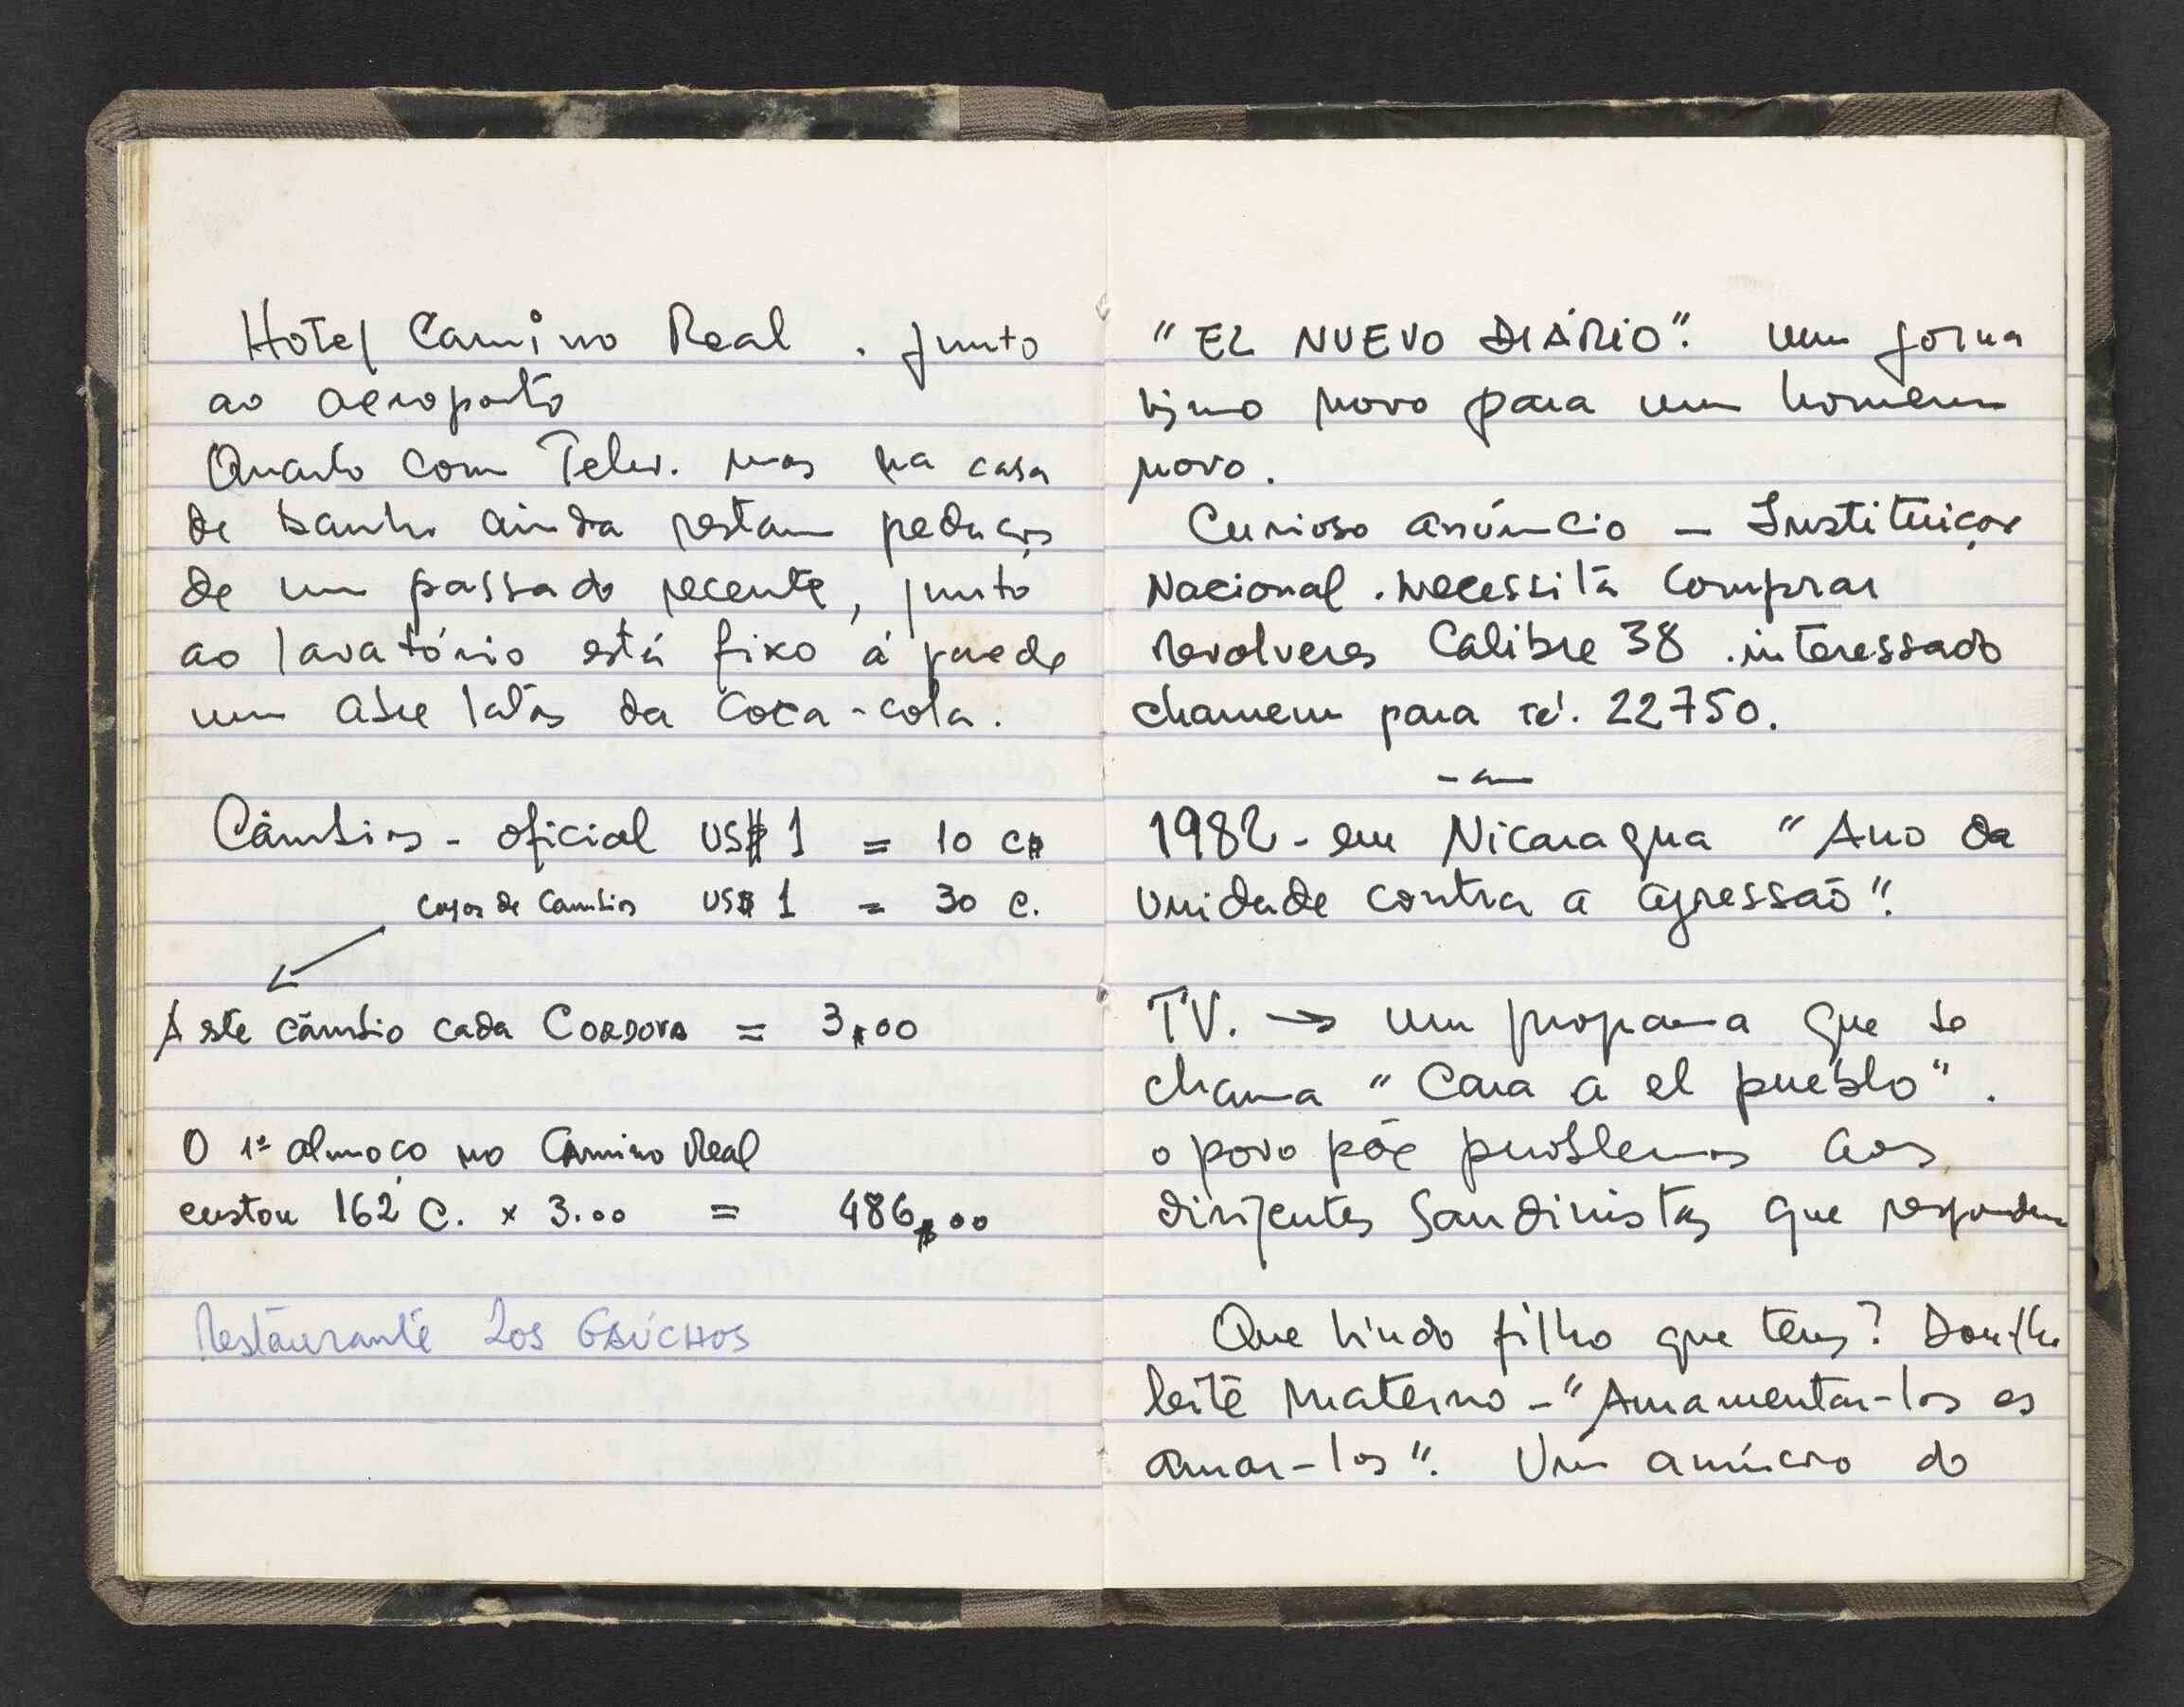 Hotel Camino Real . junto
ao aeroporto
Quarto com Telev. mas na casa
de banho ainda restam pedaços
de um passado recente, junto
ao lavatório está fixo á parede
um abre latas da Coca-cola.
Câmbios - oficial US$ 1 = 10 C$
casas de cambios US$ 1 = 30 C.
A este câmbio cada CORDOVA = 3$00
O 1º almoço no Camino Real
custou 162 C. x 3.00 = 486$00
Restaurante LOS GAÚCHOS
"EL NUEVO DIÁRIO". Um jorna
lismo novo para um homem
novo.
Curioso anúncio - Instituiçoe
Nacional . necessita comprar
revolveres Calibre 38 . interessado
chamem para té. 22750.
1982 - em Nicaragua "Ano da
Unidade contra a agressão".
TV. → Um programa que se
chama "Cara a el pueblo" .
o povo põe problemas aos
dirijentes Sandinistas que respondem
Que lindo filho que tens? Dou-lhe
leite materno - "Amamentar-los es
amar-los". Um anúncio do